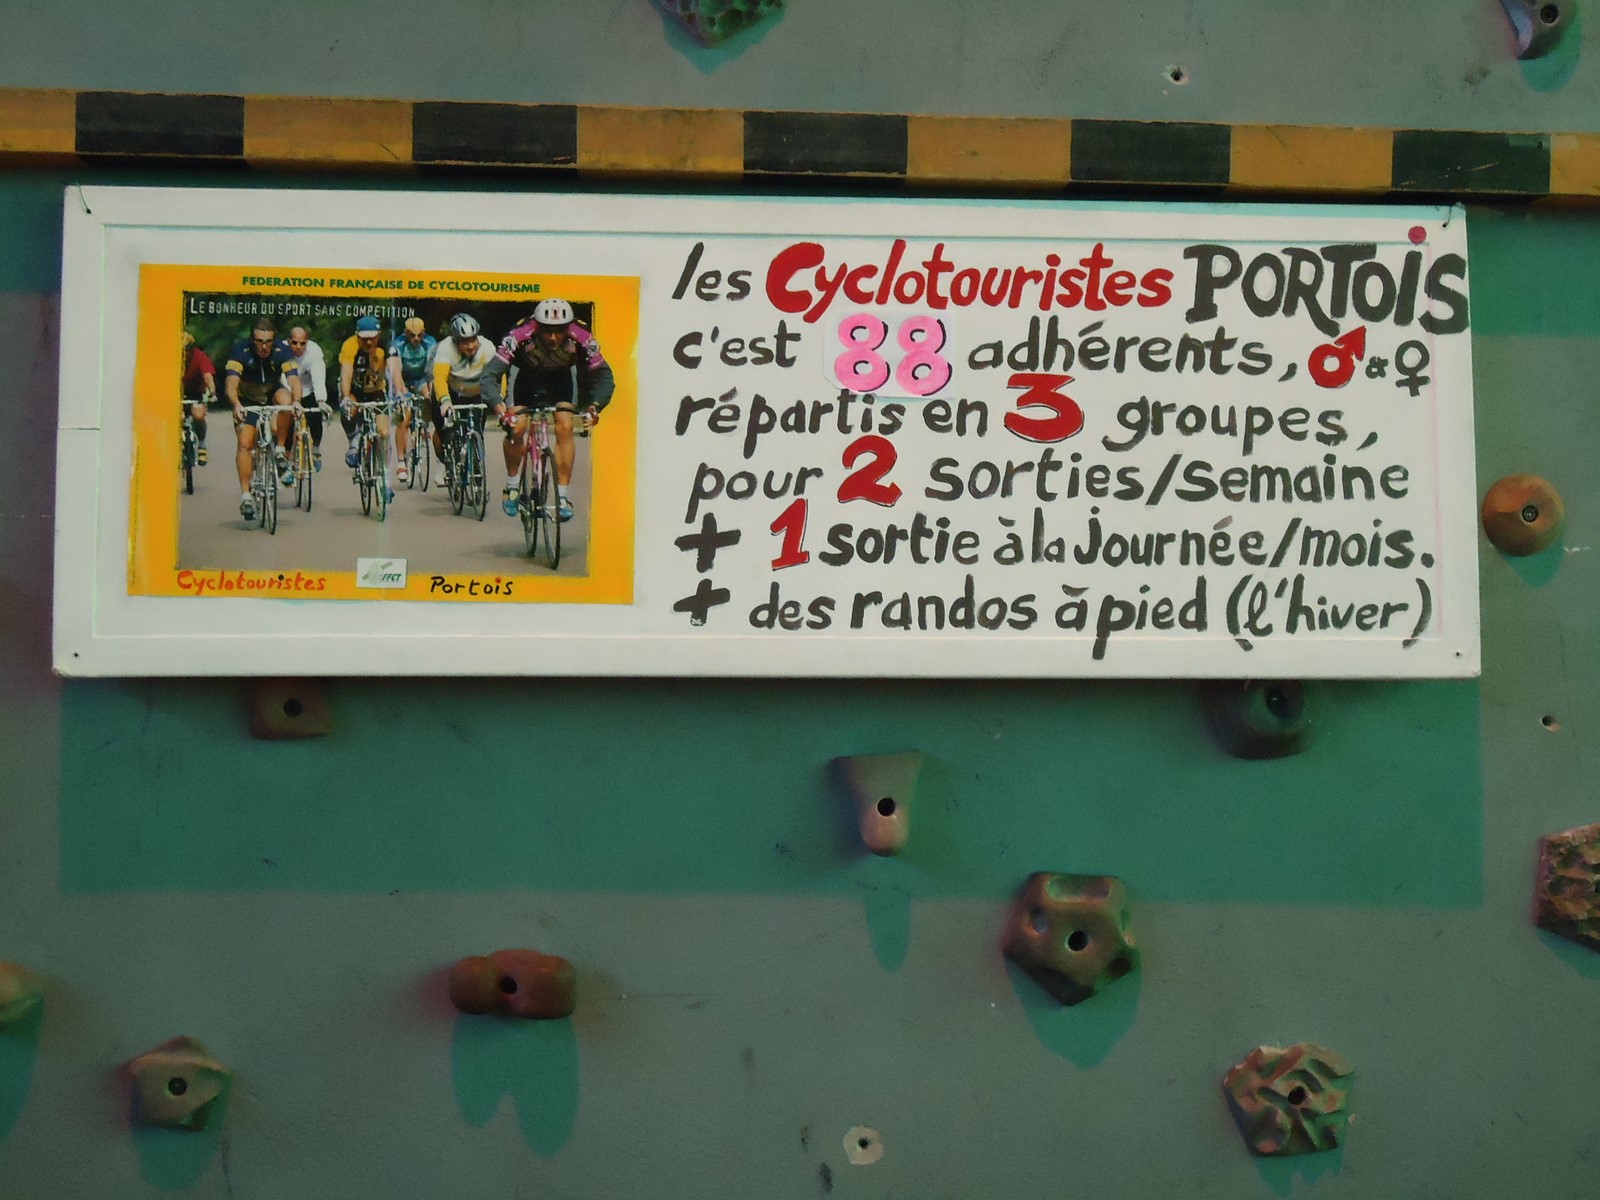 FEDERATION FRANÇAISE DE CYCLOTOURISME
LE BONHEUR DU SPORT SANS COMPETITION
Cyclotouristes Portois
FFCT
les Cyclotouristes PORTOIS
c'est 88 adhérents, ♂ & ♀
répartis en 3 groupes,
pour 2 sorties/semaine
+ 1 sortie à la Journée/mois.
+ des randos à pied (l'hiver)